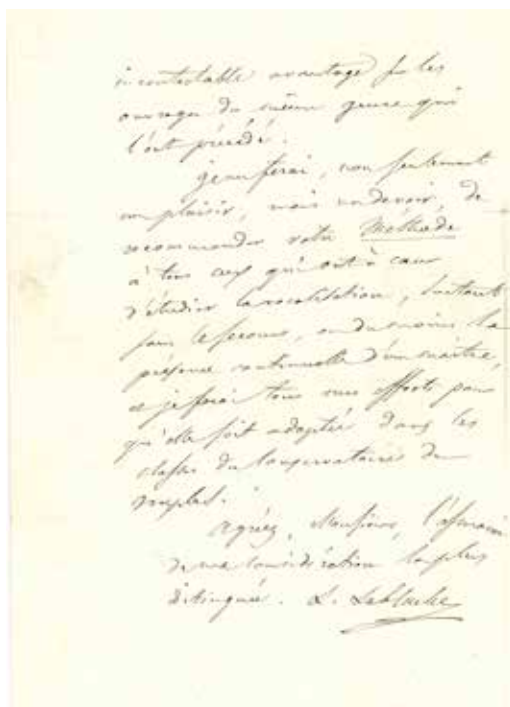 incontestable avantage sur les
ouvrages du même genre qui
l'ont précédé.
je me ferai, non seulement
un plaisir, mais un devoir, de
recommander votre Méthode
à tous ceux qui ont à cœur
d'étudier la vocalisation, surtout
sans le secours, ou du moins la
présence continuelle d'un maître,
et je ferai tous mes efforts pour
qu'elle soit adoptée dans les
classes du Conservatoire de
Naples.
Agréez, Monsieur, l'assurance
de ma considération la plus
distinguée. L. Lablache